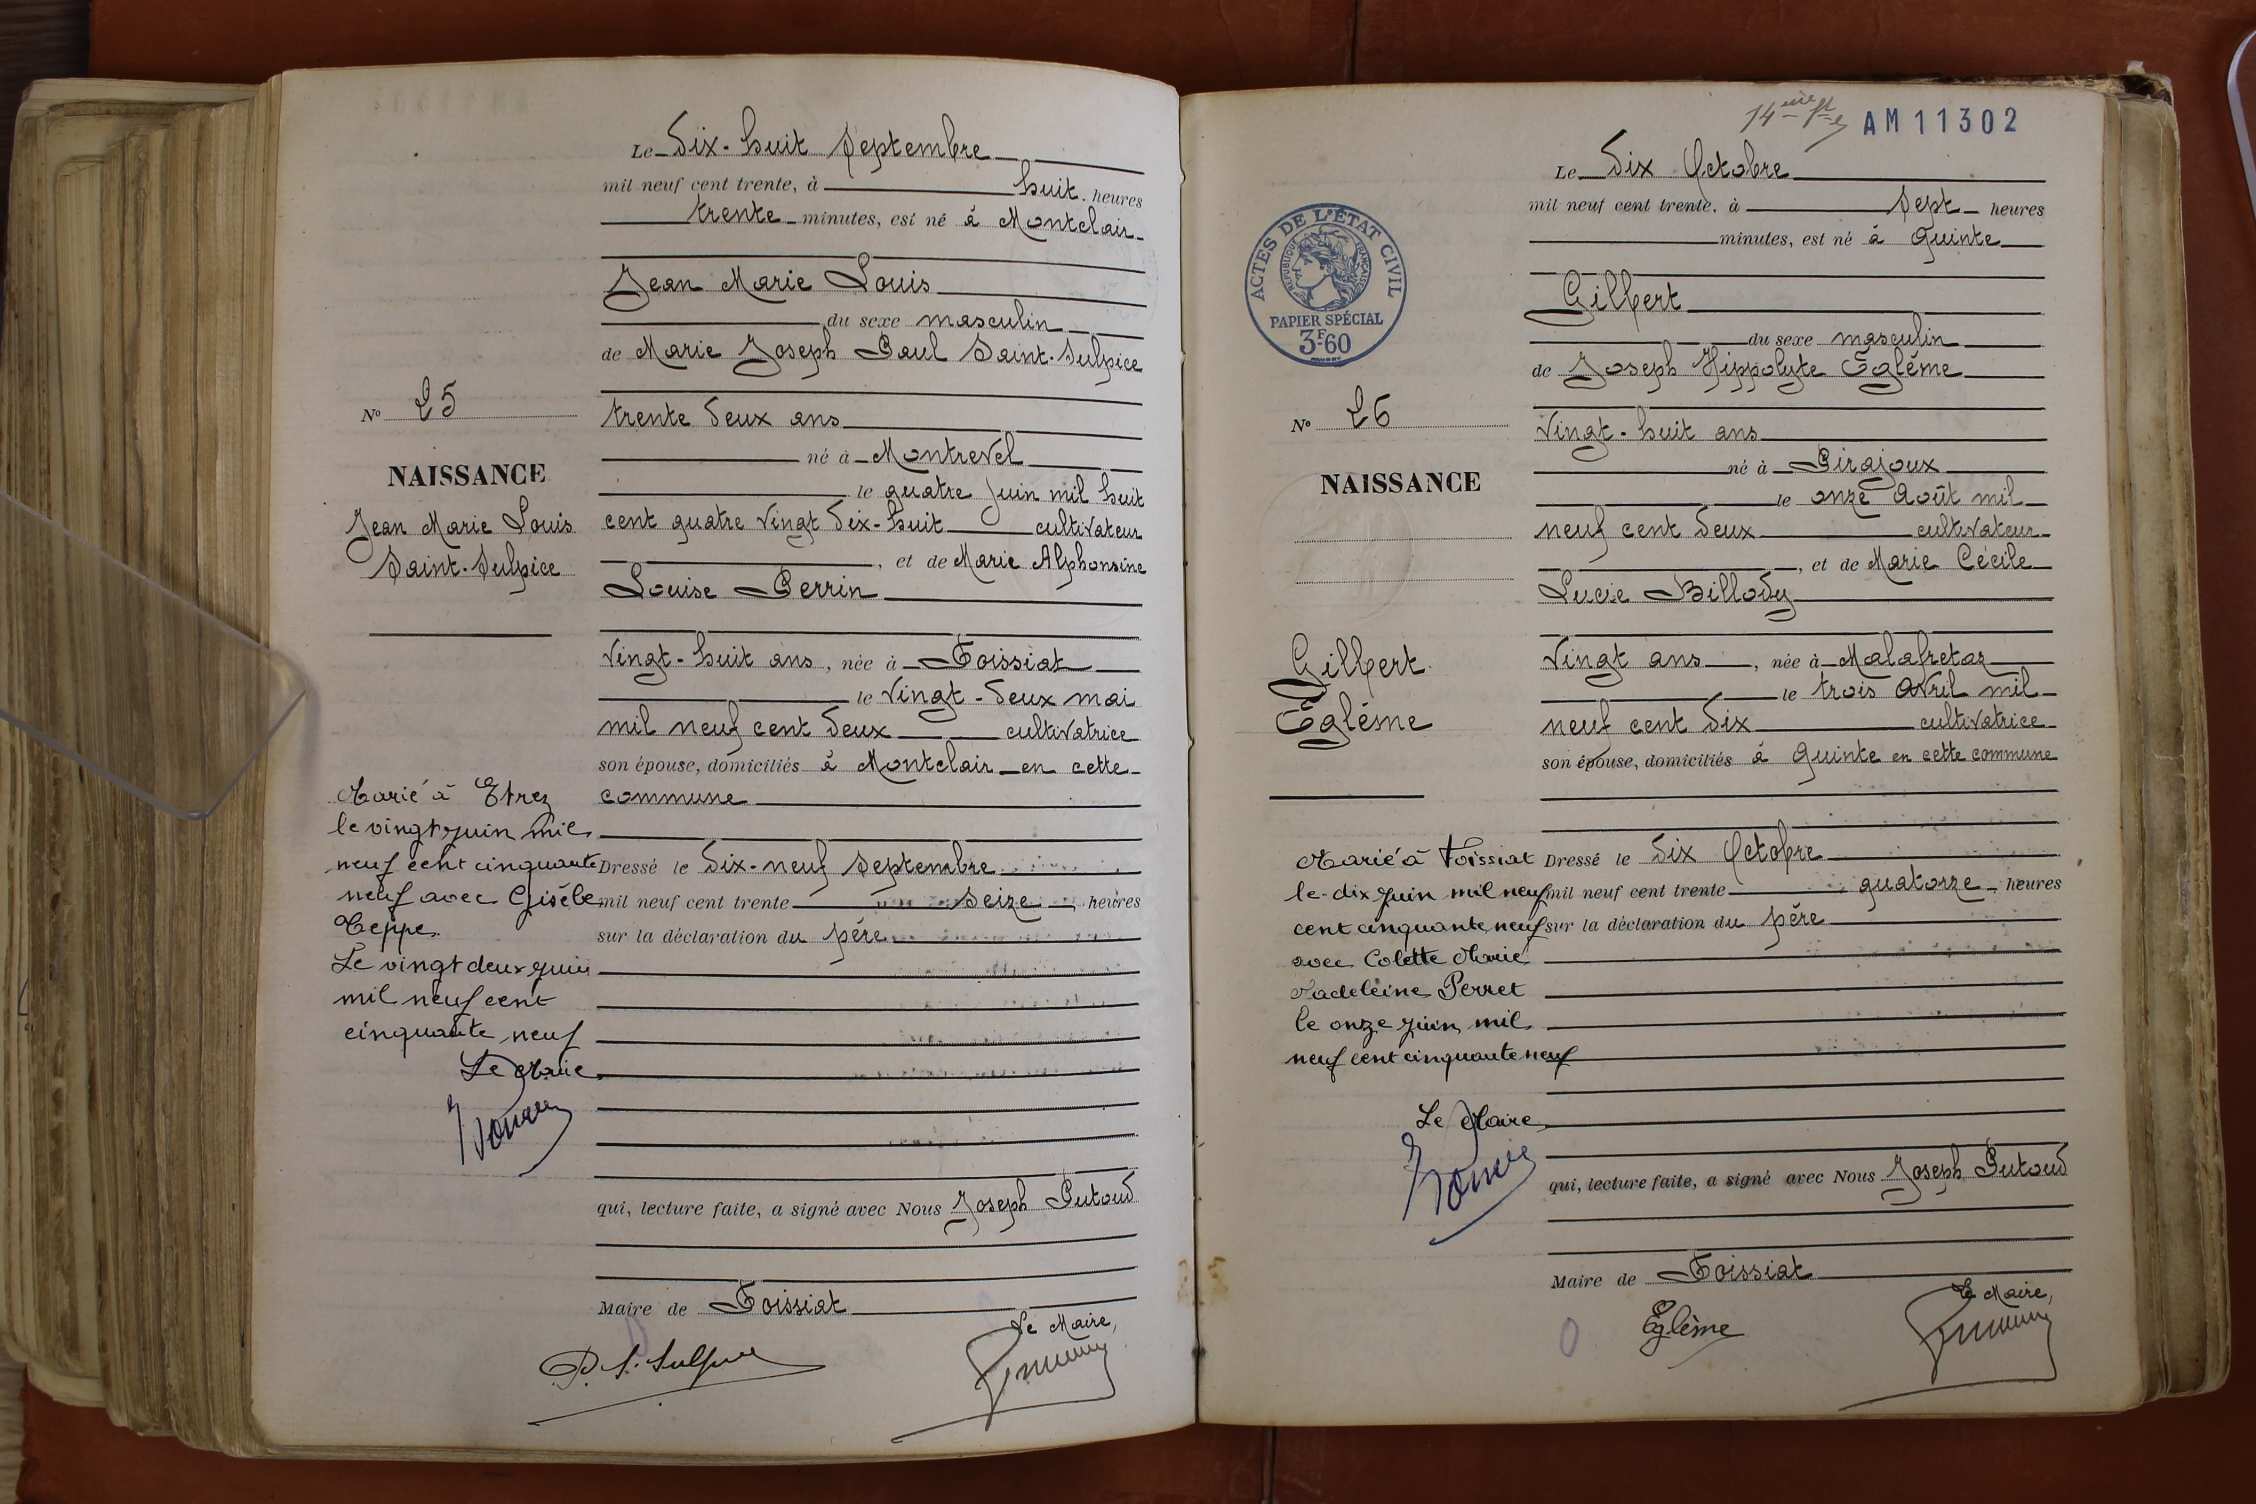 Le dix-huit Septembre
mil neuf cent trente, à huit heures
trente minutes, est né à Montclair
Jean Marie Louis
du sexe masculin
de Marie Joseph Paul Saint-Sulpice
trente deux ans
né à Montrevel
le quatre Juin mil huit
cent quatre vingt dix-huit cultivateur
, et de Marie Alphonsine
Louise Perrin
vingt-huit ans, née à Foissiat
le vingt-deux mai
mil neuf cent deux cultivatrice
son épouse, domiciliés à Montclair en cette
commune
Dressé le dix-neuf Septembre
mil neuf cent trente seize heures
sur la déclaration du père
qui, lecture faite, a signé avec Nous Joseph Putoud
Maire de Foissiat
Le Maire,
N° 25
NAISSANCE
Jean Marie Louis
Saint-Sulpice
Marié à Etrez
le vingt juin mil
neuf cent cinquante
neuf avec Gisèle
Teppe
Le vingt deux juin
mil neuf cent
cinquante neuf
Le Maire
14ème
AM11302
Le dix Octobre
mil neuf cent trente, à sept heures
minutes, est né à Quinte
Gilbert
du sexe masculin
de Joseph Hippolyte Eglème
vingt-huit ans
né à Pirajoux
le onze Août mil
neuf cent deux cultivateur
, et de Marie Cécile
Lucie Billody
vingt ans, née à Malafretaz
le trois Avril mil
neuf cent dix cultivatrice
son épouse, domiciliés à Quinte en cette commune
Dressé le dix Octobre
mil neuf cent trente quatorze heures
sur la déclaration du père
qui, lecture faite, a signé avec Nous Joseph Putoud
Maire de Foissiat
Le Maire,
Eglème
ACTES DE L'ÉTAT CIVIL
RÉPUBLIQUE FRANÇAISE
PAPIER SPÉCIAL
3F60
N° 26
NAISSANCE
Gilbert
Eglème
Marié à Foissiat
le dix juin mil neuf
cent cinquante neuf
avec Colette Marie
Madeleine Perret
le onze juin mil
neuf cent cinquante neuf
Le Maire